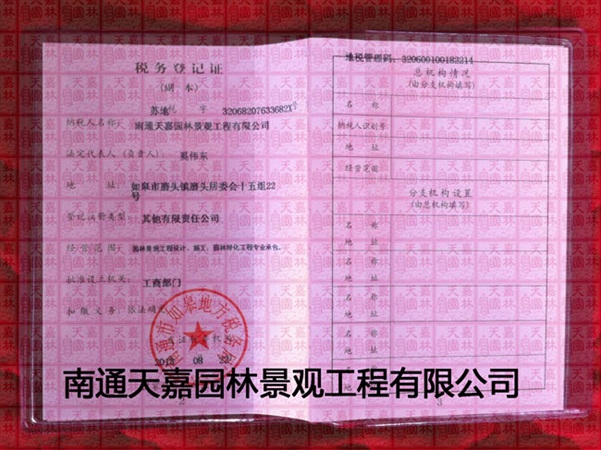 税务登记证
(副 本)
苏地税 字 32068207633682X号
纳税人名称: 南通天嘉园林景观工程有限公司
法定代表人(负责人): 奚伟东
地 址: 如皋市磨头镇磨头居委会十五组22
号
登记注册类型: 其他有限责任公司
经营范围: 园林景观工程设计、施工;园林绿化工程专业承包。
批准设立机关: 工商部门
扣缴义务: 依法确定
南通市如皋地方税务局
发证机关
地税管理码: 320600100182214
总机构情况
(由分支机构填写)
名 称
纳税人识别号
地 址
经营范围
分支机构设置
(由总机构填写)
名 称
地 址
名 称
地 址
名 称
地 址
名 称
地 址
名 称
地 址
南通天嘉园林景观工程有限公司
3
天嘉园林